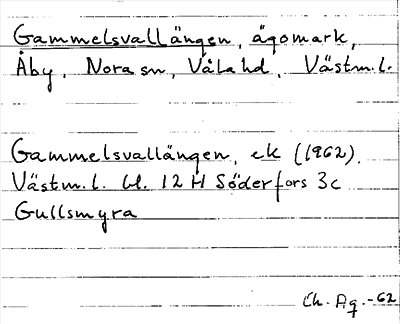 Gammelsvallängen, ägomark,
Åby, Nora sn, Våla hd, Västm.l.
Gammelsvallängen, ek (1962).
Västm.l. bl. 12 H Söderfors 3c
Gullsmyra
Ch. Ag. -62